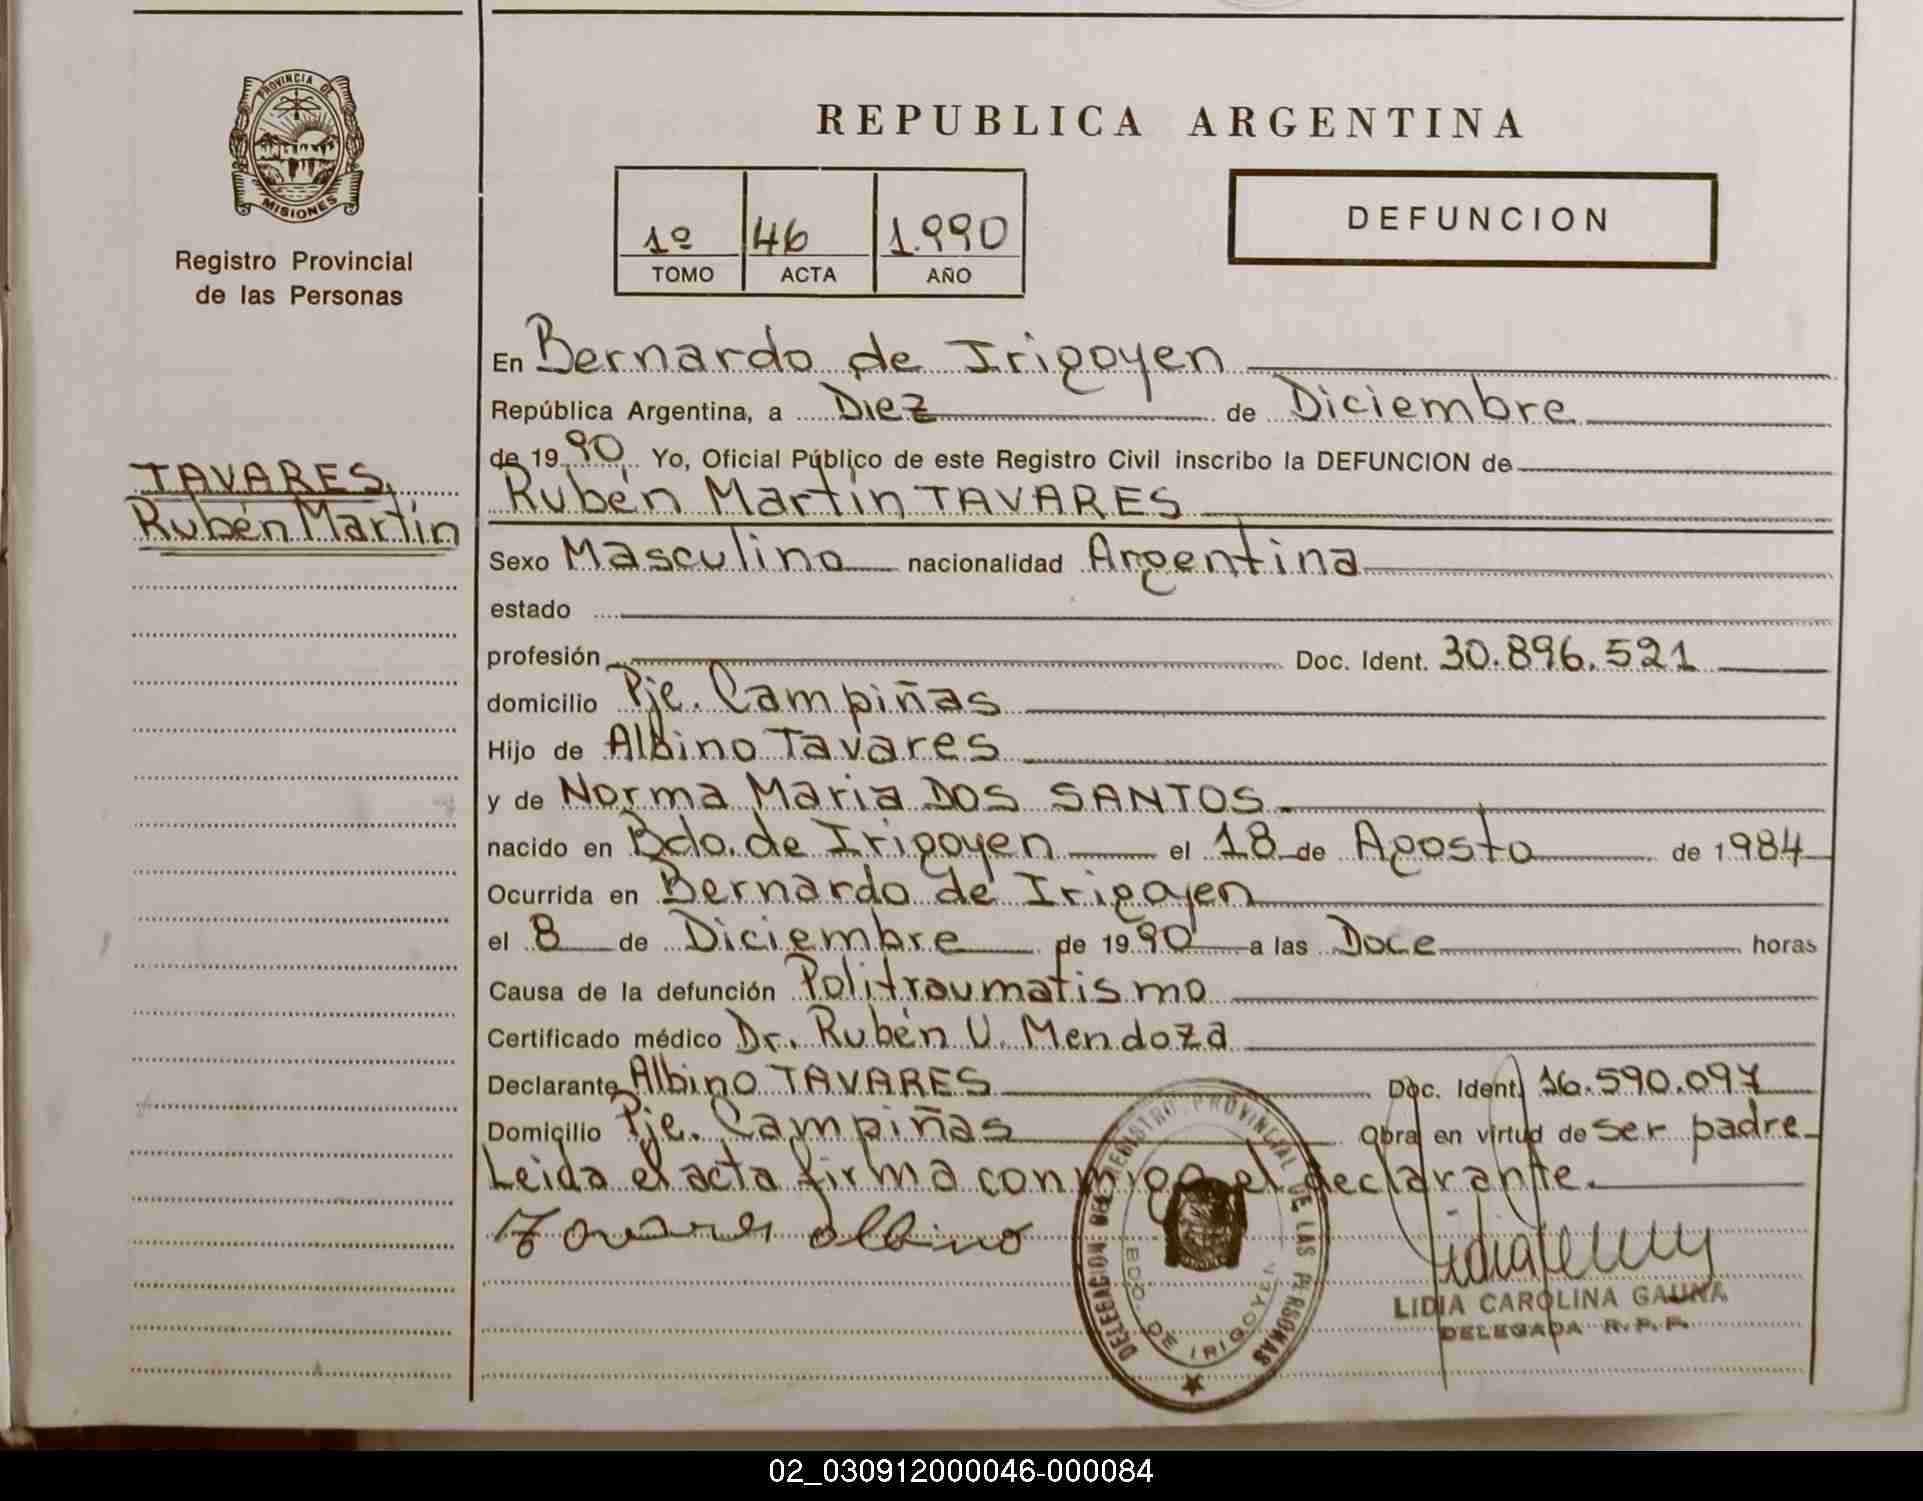 PROVINCIA DE
MISIONES
Registro Provincial
de las Personas
TAVARES,
Rubén Martín
REPUBLICA ARGENTINA
1º 46 1.990
TOMO ACTA AÑO
DEFUNCION
En Bernardo de Irigoyen
República Argentina, a Diez de Diciembre
de 1990 Yo, Oficial Público de este Registro Civil inscribo la DEFUNCION de
Rubén Martín TAVARES
Sexo Masculino nacionalidad Argentina
estado
profesión Doc. Ident. 30.896.521
domicilio Pje. Campiñas
Hijo de Albino Tavares
y de Norma Maria DOS SANTOS.
nacido en Bdo. de Irigoyen el 18 de Agosto de 1984
Ocurrida en Bernardo de Irigoyen
el 8 de Diciembre de 1990 a las Doce horas
Causa de la defunción Politraumatismo
Certificado médico Dr. Rubén U. Mendoza
Declarante Albino TAVARES Doc. Ident. 16.590.097
Domicilio Pje. Campiñas Obra en virtud de ser padre
Leida el acta firma conmigo el declarante.
Tavares Albino
DELEGACION DEL REGISTRO PROVINCIAL DE LAS PERSONAS
BDO. DE IRIGOYEN
LIDIA CAROLINA GAUNA
DELEGADA R.P.P.
02_030912000046-000084